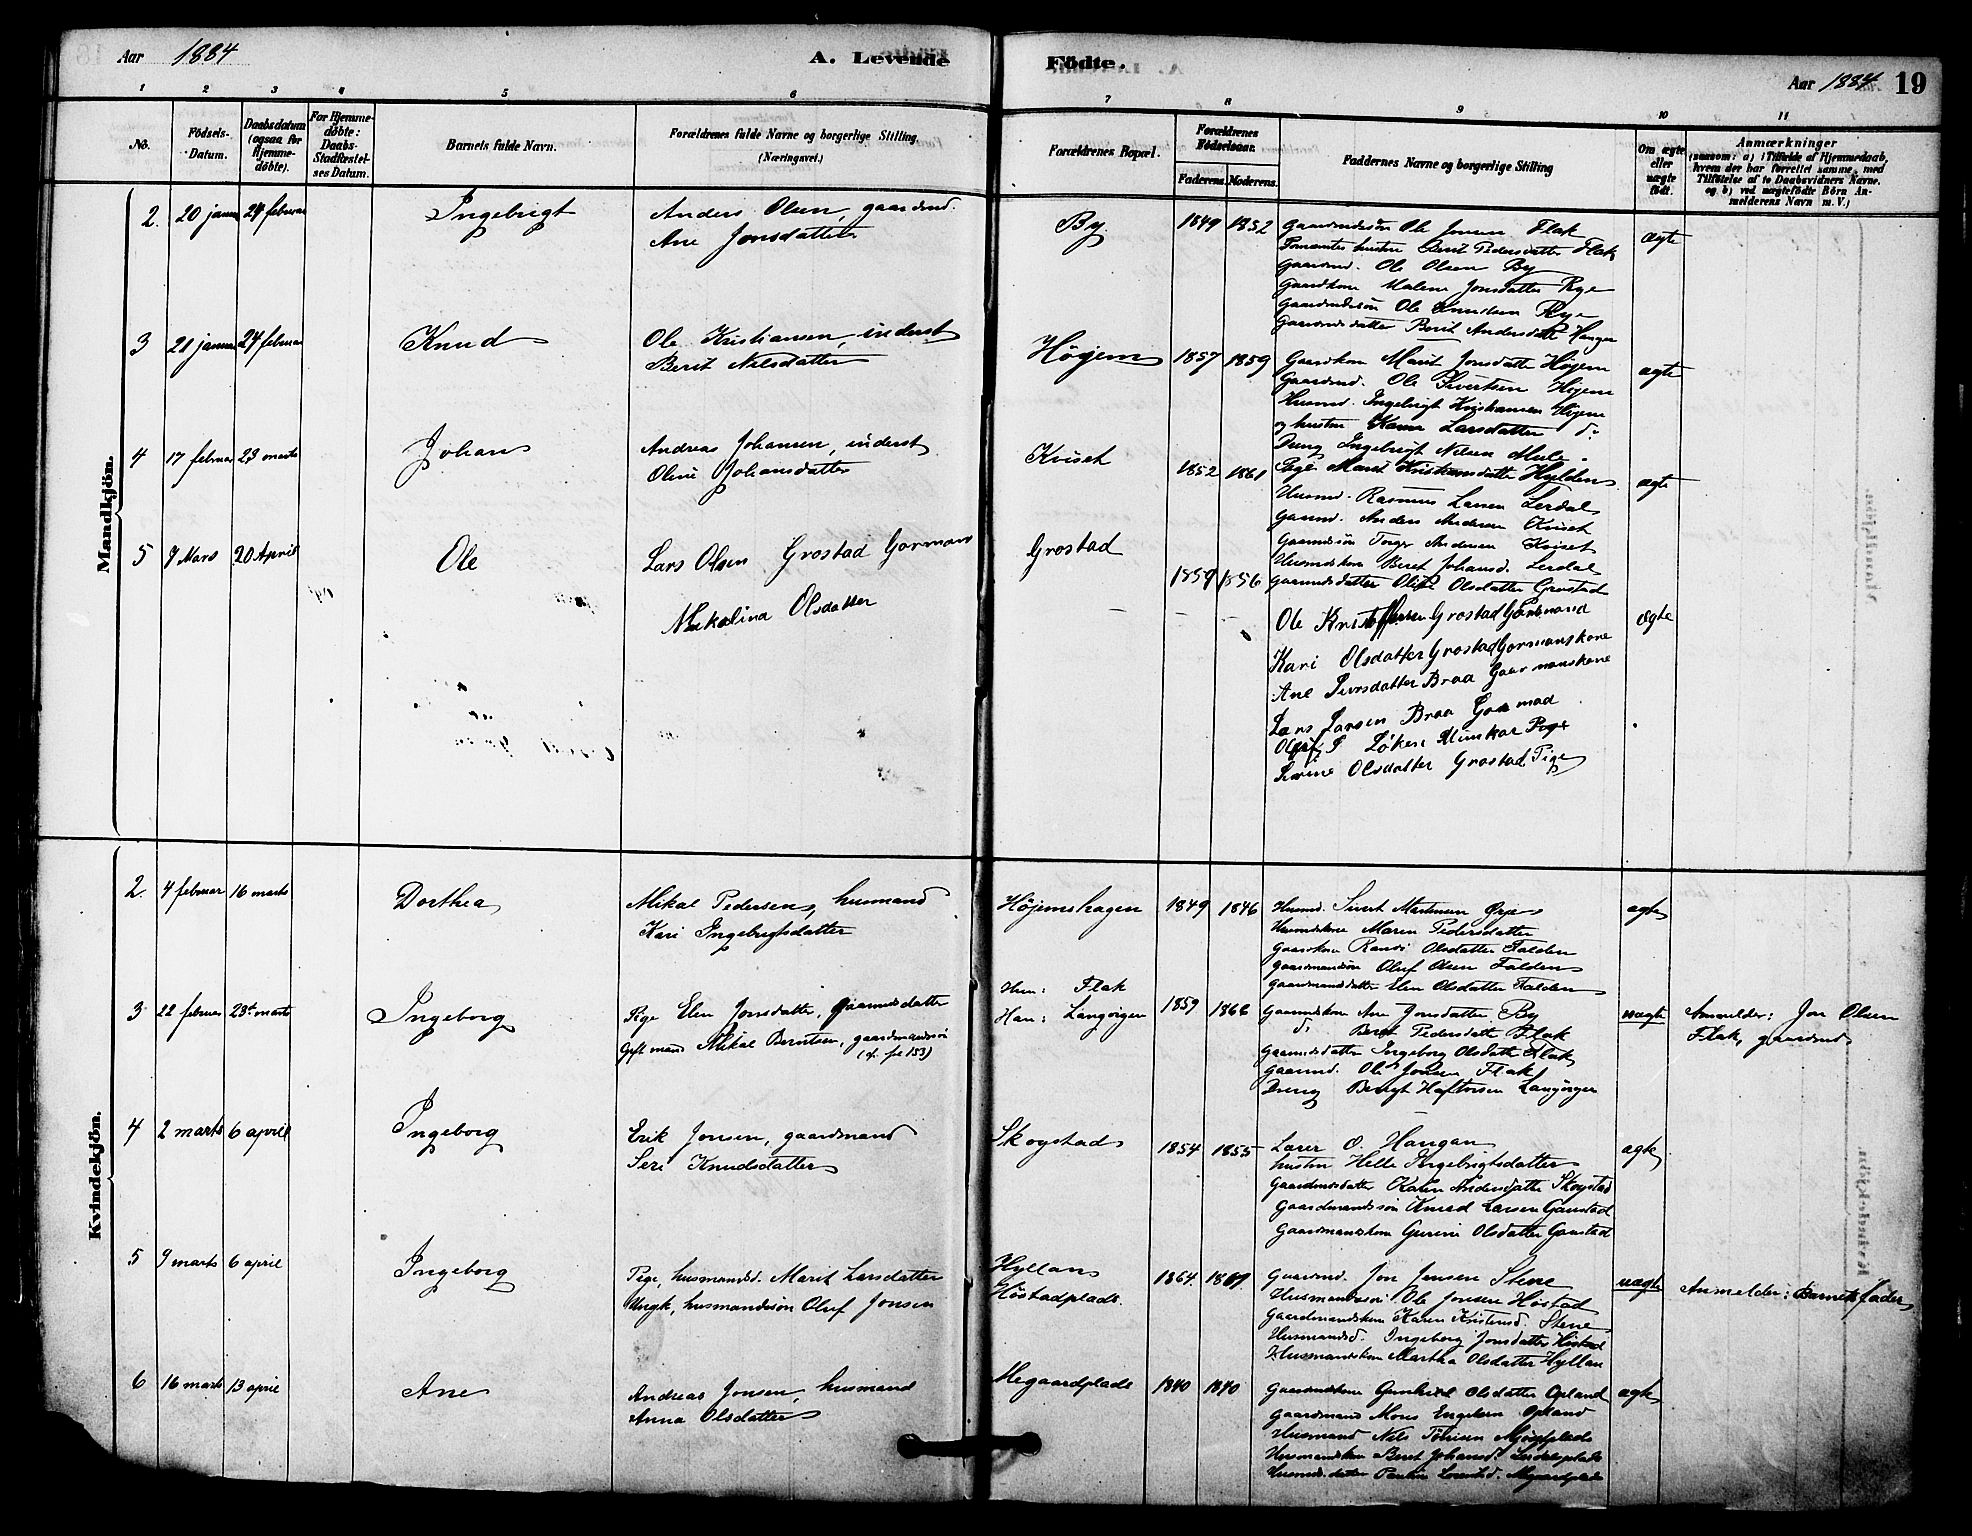 Aar 1884
A. Levende
Födte.
Aar 1884
19
1 2 3 4 5 6 7 8 9 10 11
No.
Födsels-Datum.
Daabsdatum (ogsaa for Hjemme-döbte).
For Hjemme-döbte: Daabs-Stadfæstel-ses Datum.
Barnets fulde Navn.
Forældrenes fulde Navne og borgerlige Stilling. (Næringsvei.)
Forældrenes Bopæl.
Forældrenes Födselsaar.
Faderens. Moderens.
Faddernes Navne og borgerlige Stilling
Om ægte eller uægte födt.
Anmærkninger
(saasom: a) i Tilfælde af Hjemmedaab, hvem der har forrettet samme, med Tilföielse af to Daabsvidners Navne, og b) ved uægtefödte Börn An-melderens Navn m. V.)
Mandkjön.
2. 20 januar 24 februar Ingebrigt
Anders Olsen, gaardmd.
Ane Jonsdatter
By 1849 1852
Gaardmdssön Ole Jonsen Flak
hustru Berit Pedersdatter Flak
Gaardmd. Ole Olsen By
Gaardkone Malene Jonsdatter Rye
Gaardmdssön Ole Knudsen Rye
Gaardmdsdatter Berit Andersdatter Hangen
ægte
3 21 januar 24 februar Knud
Ole Kristiansen, inderst
Berit Nilsdatter
Höjem 1857 1859
Gaardkone Marit Jonsdatter Höjem
Gaardmd. Ole Sivertsen Höjem
Husmd. Ingebrigt Kristiansen Höjem
og hustru Karen Larsdatter do
Dreng Ingebrigt Nilsen Mule
ægte
4 17 februar 23 marts Johan
Andreas Johansen, inderst
Oline Johansdatter
Kviset 1852 1861
Pige Marit Kristiansdatter Hylden
Husmd. Rasmus Larsen Lerdal
Gaardmd. Anders Andersen Kviset
Gaardmdssön Torger Andersen Kviset
Husmdskone Beret Johansd. Lerdal
Gaardmdsdatter Oline Olsdatter Grostad
ægte
5 7 Mars 20 April Ole
Lars Olsen Grostad Gorman
Mekalina Olsdatter
Grostad 1859 1856
Ole Kristoffersen Grostad Garmand
Kari Olsdatter Grostad Gormanskone
Ane Siversdatter Braa Gaarmanskone
Lars Larsen Braa Goamad
Oluf P Löken Unnkar
Serine Olsdatter Grostad Pige
ægte
Kvindekjön.
2. 4 februar 16 marts Dorthea
Mikal Pedersen, husmand
Kari Ingebrigtsdatter
Höjemshagen 1849 1846
Husmd. Sivert Martinsen Öye
Husmdskone Maren Pedersdatter
Gaardkone Randi Olsdatter Falden
Gaardmandssön Oluf Olsen Falden
Gaardmandsdatter Elen Olsdatter Falden
ægte
3 22 februar 23de marts Ingeborg
Pige Elen Jonsdatter, gaardmdsdatter
Gift mand Mikal Berntsen, gaardmandssön
(cf. fol 153)
Hun: Flak
Han: Langörgen
1859 1866
Gaardmdskone Ane Jonsdatter By
do Beret Pedersdatter Flak
Gaardmdsdatter Ingeborg Olsdatter Flak
Gaardmd. Ole Jonsen Flak
Dreng Bengt Haftorsen Langörgen
uægte
Anmelder: Jon Olsen
Flak, gaardmd
4 2 marts 6 april Ingeborg
Erik Jonsen, gaardmand
Seri Knudsdatter
Skogstad 1854 1855
Lærer O. Haugan
hustru Helle Ingebrigtsdatter
Gaardmdsdatter Karen Andersdatter Skogstad
Gaardmandssön Knud Larsen Gaustad
Gaardmandskone Gurine Olsdatter Gaustad
ægte
5 9 marts 6 april Ingeborg
Pige, husmandsd. Marit Larsdatter
Ungk, husmandssön Oluf Jonsen
Hyllan
Höstadplads
1864 1861
Gaardmd. Jon Jensen Stene
Husmandssön Ole Jonsen Höstad
Gaardmandskone Karen Kristensd. Stene
Husmandsd. Ingeborg Jonsdatter Höstad
Husmandskone Martha Olsdatter Hyllan
uægte
Anmelder: Barnets fader
6 16 marts 13 april Ane
Andreas Jonsen, husmand
Anna Olsdatter
Megaardplads 1840 1840
Gaardmdskone Gunhild Olsdatter Opland
Gaardmand Mons Engelsen Opland
Husmand Nils Tönsen
Husmandskone Beret Johansd. Lerdalsplads
Husmdsdatter Megaardplads
ægte